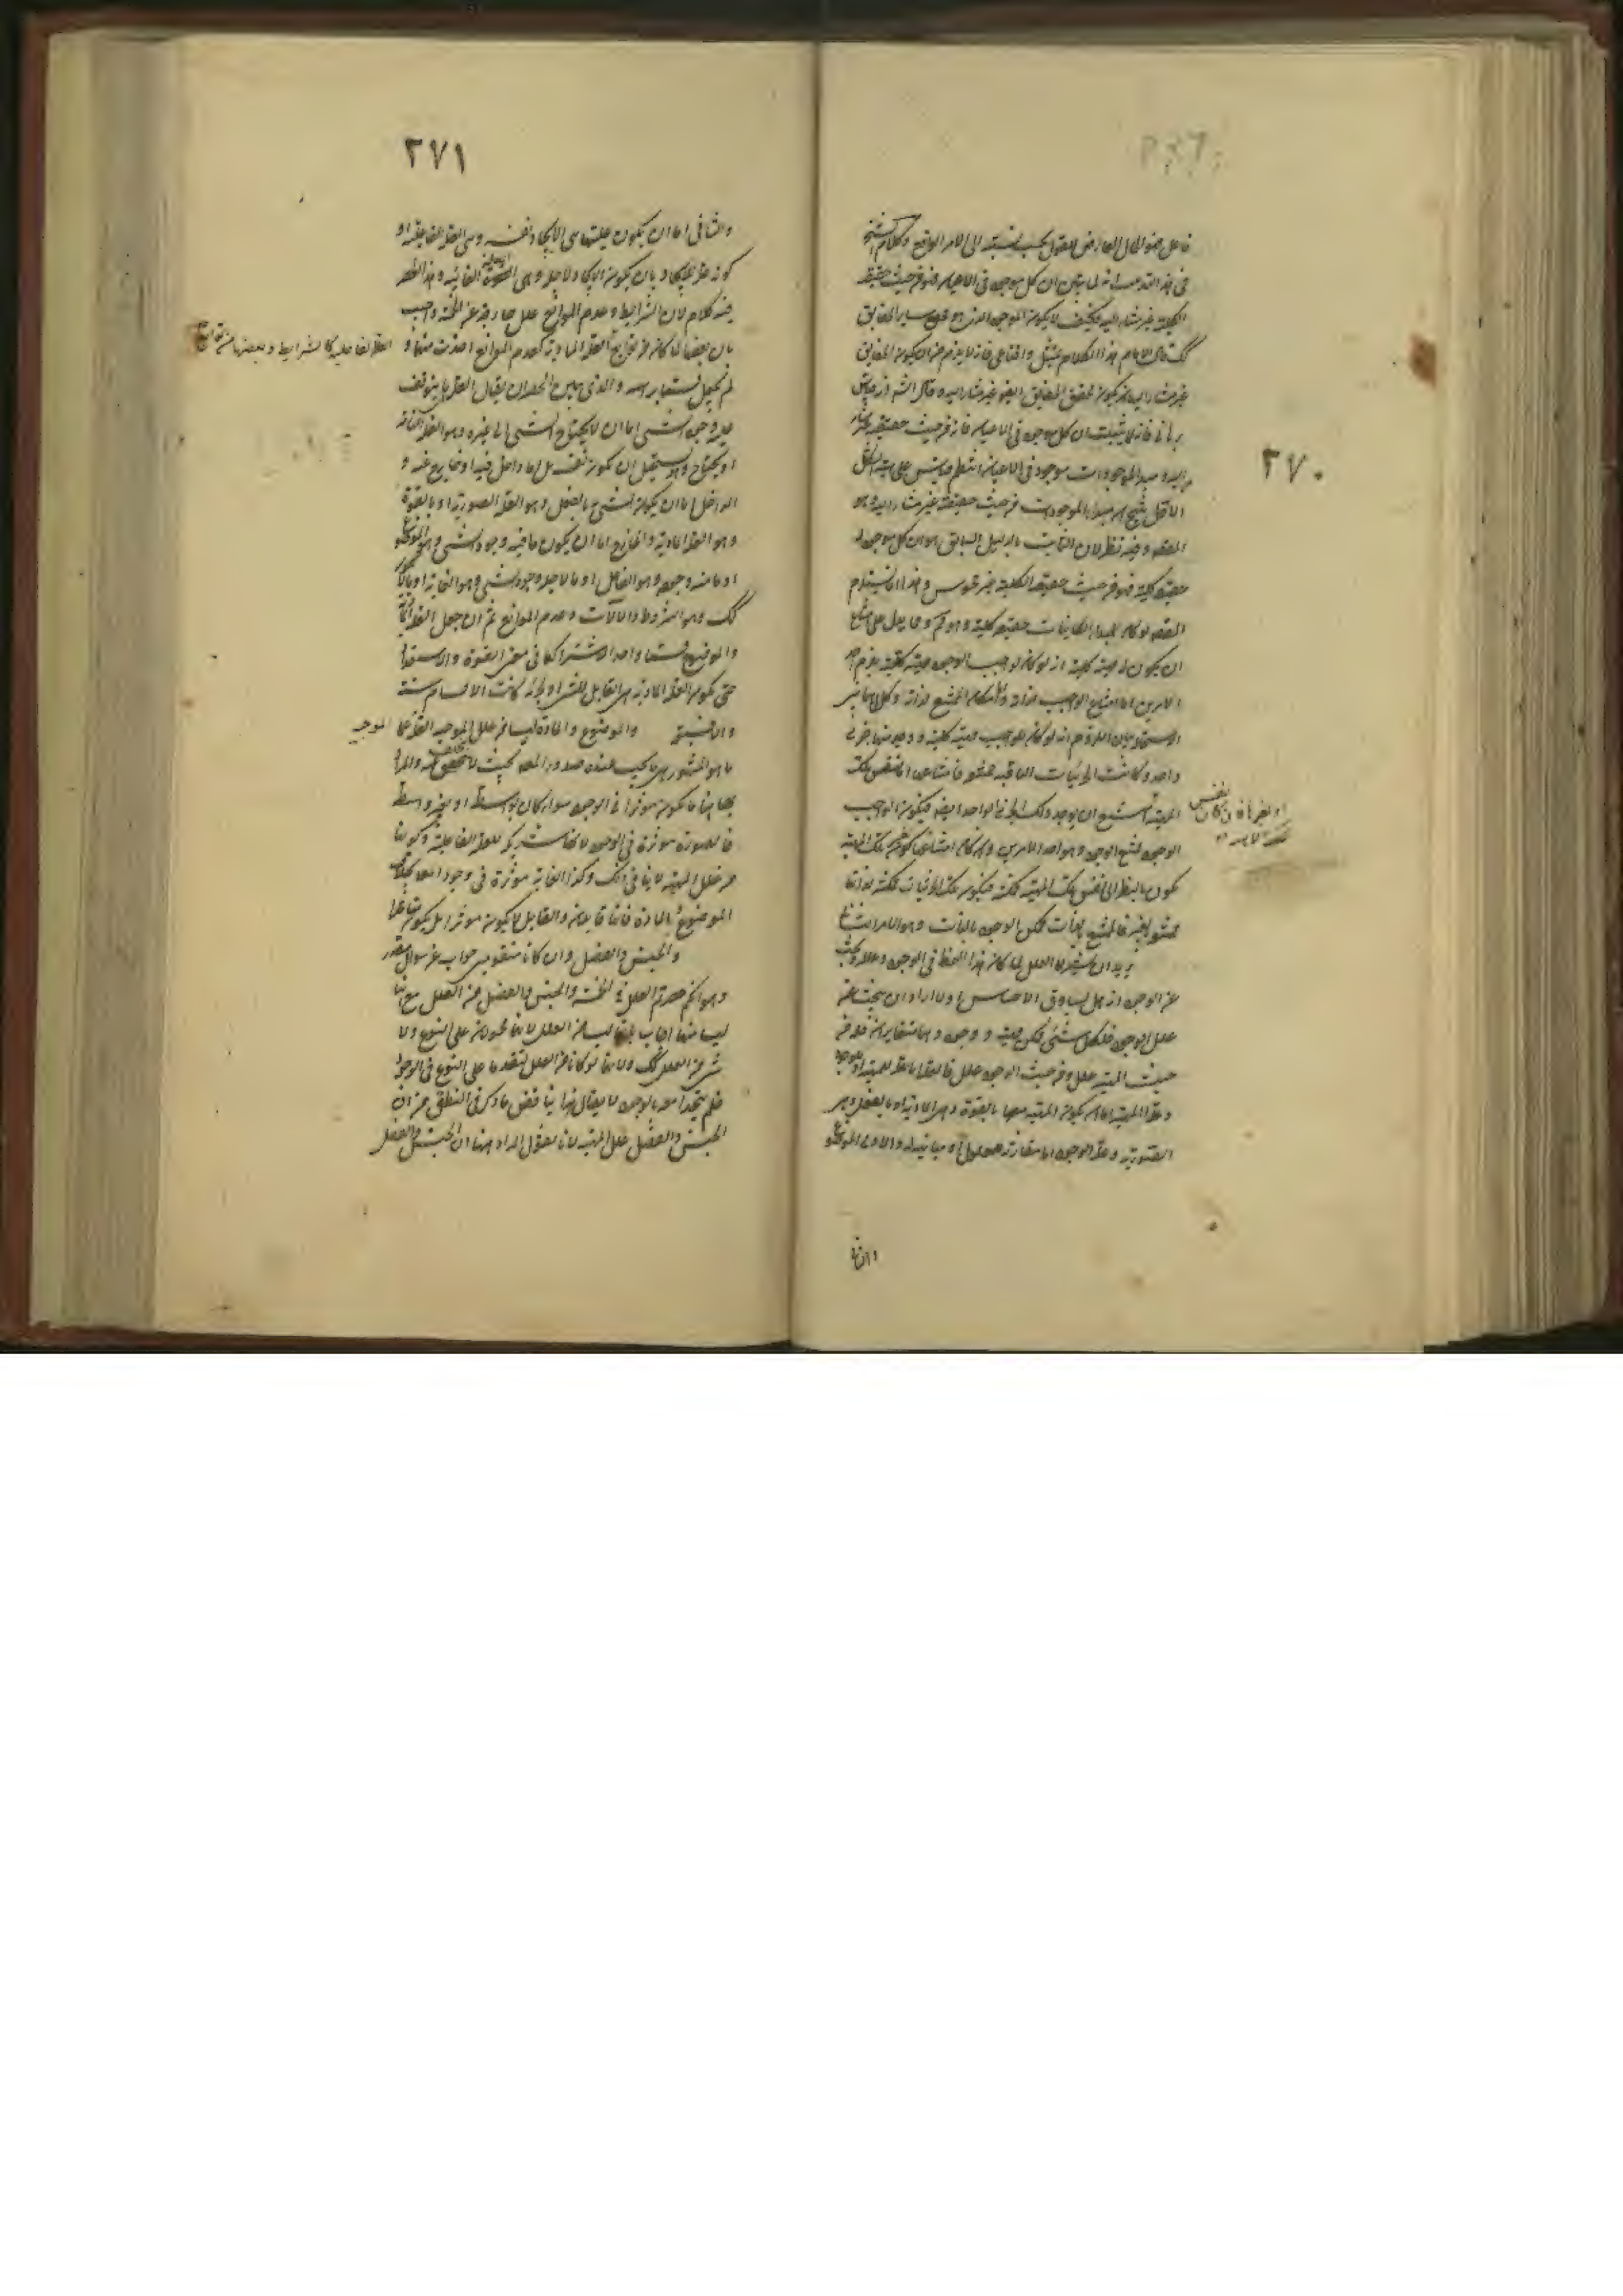 ٢٧٠
فاعل هو الحال العارض للعقول بحسب نسبته الى الامر الواقع وكلام الشيخ
في هذا انه لما تبين ان كل موجود في الاعيان فهو من حيث حقيقته
الكلية غير مشار اليه فكيف لا يكون الموجود الذي هو فوق ساير الحقايق
كك قال الامام هذا الكلام تمثيل واقناعي فانه لا يلزم من ان يكون الحقايق
غير مشار اليها ان يكون محقق الحقايق ايضا غير مشار اليه وقال الش انه قياس
برهاني فانه لما ثبت ان كل موجود في الاعيان فانه من حيث حقيقته غير مشار
اليه ومبدا الموجودات موجود في الاعيان انتظم قياس على هيئة الشكل
الاول ينتج ان مبداء الموجودات من حيث حقيقته غير مشار اليه وهو
المقصد وفيه نظر لان الثابت بالدليل السابق هو ان كل موجود له
حقيقة كلية فهو من حيث حقيقته الكلية غير محسوس وهذا انما يستلزم
المقصد لو كان لمبداء الكاينات حقيقة كلية وهو مم ومما يدل على امتناع
ان يكون له مهية كلية انه لو كان لواجب الوجود مهية كلية يلزم احد
الامرين اما امتناع الواجب لذاته واما امكان الممتنع لذاته وكلاهما بين
الاستحالة بيان اللزوم انه لو كان للواجب مهية كلية و وجد منها جزئي
واحد وكانت الجزئيات الباقية ممتنعة فامتناعها اما لنفس تلك
المهية امتنع ان يوجد ذلك الجزئي الواحد ايضا فيكون الواجب
او لغيرها فان كان لنفس تلك
الوجود ممتنع الوجود وهو احد الامرين وان كان امتناعها لغير تلك المهية
تكون بالنظر الى نفس تلك المهية ممكنة فيكون تلك الجزئيات ممكنة لذاتها
ممتنعة لغيرها فالممتنع بالذات ممكن الوجود بالذات وهو الامر الثاني
يريد ان يشير الى العلل لما كان هذا النمط في الوجود وعلله وبحث
عن الوجود انه هل يساوق الاحساس ام لا اراد ان يبحث عن
علل الوجود فلكل شئ ممكن مهية و وجود وهما متغايران فله من
حيث المهية علل ومن حيث الوجود علل فالعلة اما علة للمهية او للوجود
وعلة المهية اما ان يكون المهية معها بالقوة وهي المادية او بالفعل وهي
الصورية وعلة الوجود اما مقارنة للمعلول او مباينة له والاول الموضوع
والثاني
٢٧١
والثاني اما ان يكون عليتها هي الايجاد نفسه وهي العلة الفاعلية او
كونه علة للايجاد بان يكون الايجاد لاجله وهي العلة الغائية وهذا الحصر
فيه كلام لان الشرايط وعدم الموانع علل خارجة عن الخمسة واجيب
بان بعضها لما كان من توابع العلة المادية كعدم الموانع اخذت منها و
العلة الفاعلية كالشرايط وبعضها من توابع
لم يجعل قسما براسه والذي يبين الحصر ان يقال العلة ما يتوقف
عليه وجود الشئ اما ان لا يحتاج الشئ الى غيره وهو العلة التامة
او يحتاج ويستحيل ان يكون نفسه بل اما داخل فيه او خارج عنه و
الداخل اما ان يكون الشئ بالفعل وهو العلة الصورية او بالقوة
وهو العلة المادية والخارج اما ان يكون ما فيه وجود الشئ وهو الموضوع
او ما منه وجوده وهو الفاعل او ما لاجله وجود الشئ وهو الغاية او ما لا يكون
كك وهو الشروط والالات وعدم الموانع ثم ان جعل المادة
والموضوع قسما واحدا لاشتراكهما في معنى القوة والاستعداد
حتى يكون العلة المادية هي القابل للشئ او لجزئه كانت الاقسام ستة
والا فسبعة والموضوع والمادة ليسا من علل الموجبة العلة
الموجبة
ما هو المشهور هي ما يجب عنده صدور المعلول بحيث لا يتخلف عنه والمراد
بها هنا ما يكون موثرا في الوجود سواء كان بواسطة او بغير واسطة
فالصورة موثرة في الوجود لانها شريكة للعلة الفاعلية وكونها
من علل المهية لا ينافي ذلك وكذا الغاية موثرة في وجود المعلول بخلاف
الموضوع والمادة فانهما قابلان والقابل لا يكون موثرا بل يكون متاثرا
والجنس والفصل وان كانا مقومين جواب عن سوال مقدر
وهو انكم حصرتم العلل في الخمسة والجنس والفصل من العلل مع انهما
ليسا منها اجاب بانهما ليسا من العلل لانهما محمولان على النوع ولا
شئ من العلل كك ولانهما لو كانا من العلل لتقدما على النوع في الوجود
فلم يتحدا معه بالوجود لا يقال هذا يناقض ما ذكر في المنطق من ان
الجنس والفصل علل المهية لانا نقول المراد هنا ان الجنس والفصل